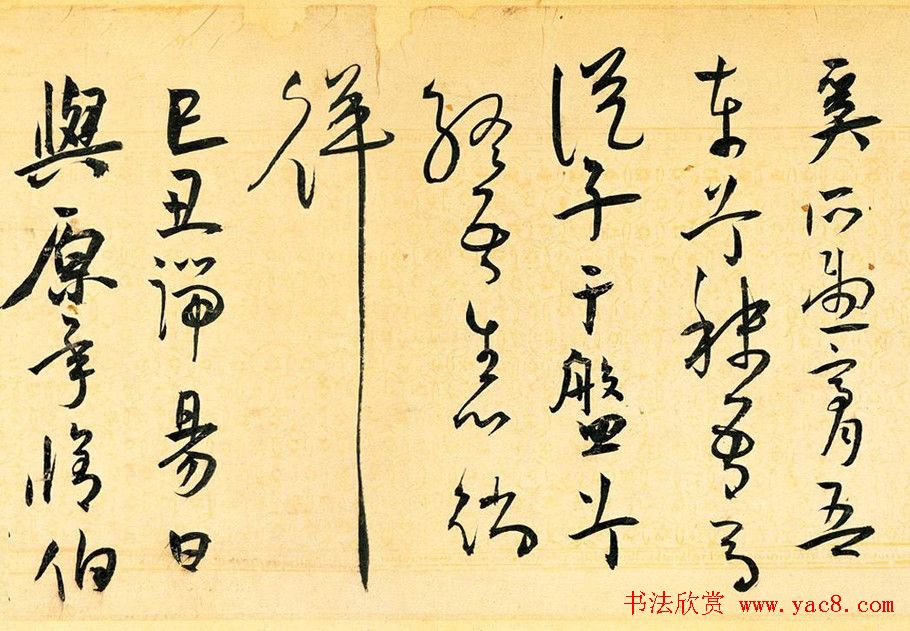 奚所望膏吾
車兮秣吾馬
從子于盤兮
終吾生以徜
徉
己丑端昜日
與原季脩伯
书法欣赏 www.yac8.com